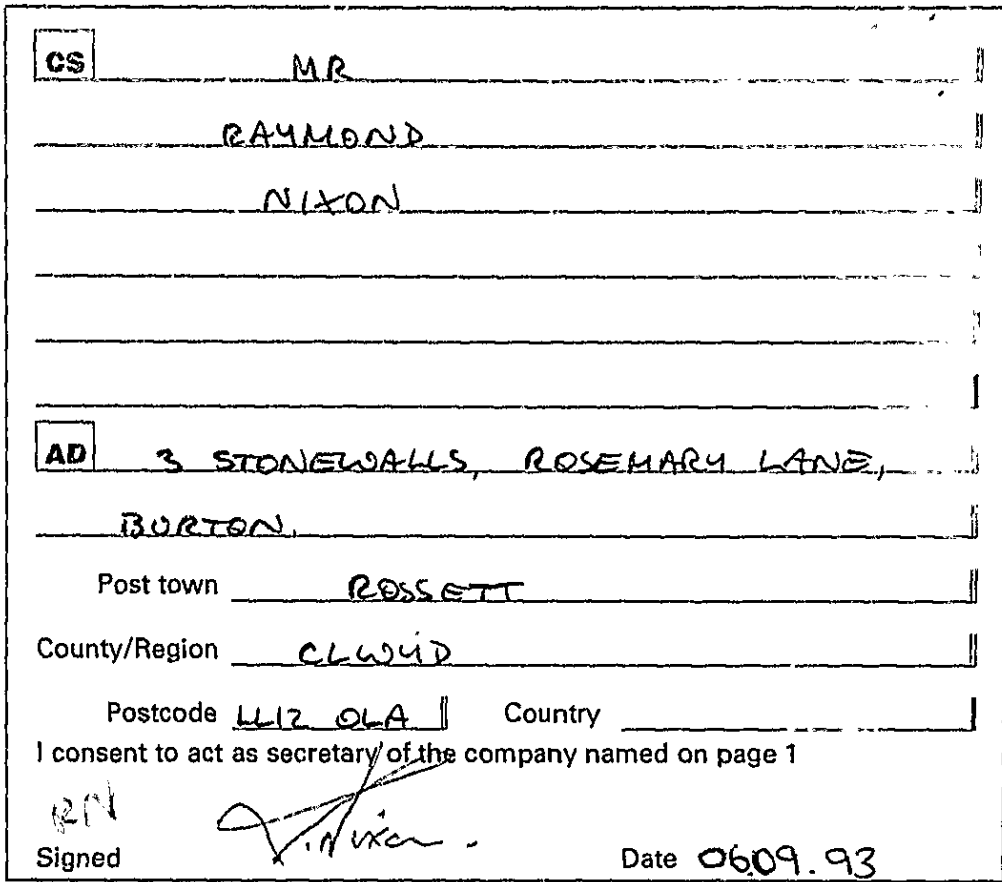 CS MR
RAYMOND
NIXON
AD 3 STONEWALLS, ROSEMARY LANE,
BURTON,
Post town ROSSETT
County/Region CLWYD
Postcode LL12 0LA Country
I consent to act as secretary of the company named on page 1
RN
Signed Nixon. Date 06.09.93